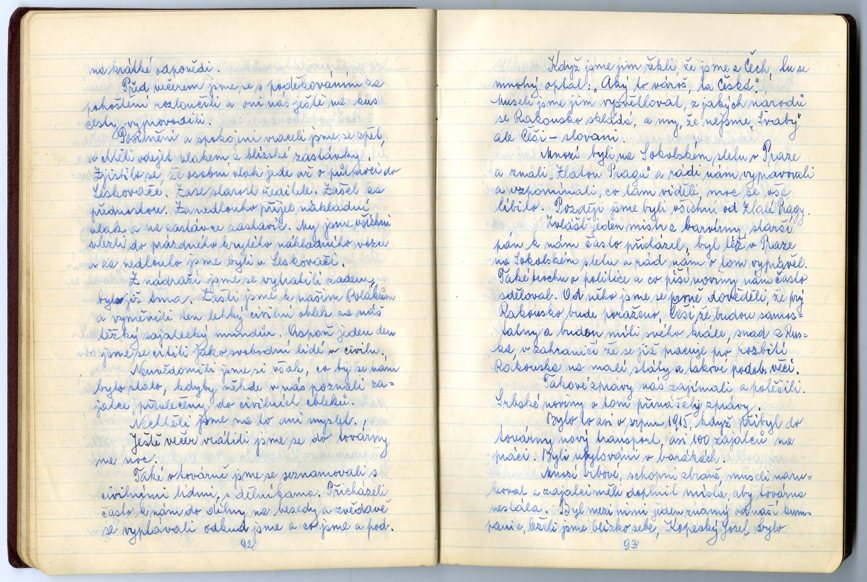 na krátké odpovědi.
Před večerem jsme se s poděkováním za
pohoštění rozloučili a oni nás ještě na kus
cesty vyprovodili.
Posilněni a spokojni vraceli jsme se zpět,
a chtěli odejet vlakem z blízské zastávky.
Zjistilo se, že osobní vlak jede až o půlnoci do
Leskovače. Zase starost ředitele. Zašel za
přednostou. Zanedlouho přijel nákladní
vlak a na zastávce zastavil. My jsme všichni
vlezli do prázdného krytého nákladního vozu
a za nedlouho jsme byli v Leskovači.
Z nádraží jsme se vytratili zadem,
bylo již tma. Zašli jsme k našim Polákům
a vyměnili ten lehký civilní oblek za náš
těžký zajatecký mundůr. Aspoň jeden den
jsme se cítili jako svobodní lidé v civilu.
Neuvědomili jsme si však, co by se nám
bylo stalo, kdyby někde v nás poznali za-
jatce převlečený do civilních obleků.
Nechtěli jsme na to ani myslet.
Ještě večer vrátili jsme se do továrny
na noc.
Také v továrně jsme se seznamovali s
civilními lidmi, s dělníkama. Přicházeli
často k nám do dílny na besedy a zvědavě
se vyptávali odkud jsme a co jsme a pod.
92
Když jsme jim řekli, že jsme z Čech, tu se
mnohý optal: „Aký to varoš, ta Česká“,
Museli jsme jim vysvětlovat, z jakých národů
se Rakousko skládá, a my, že nejsme „Švaby“
ale Češi – slovani.
Mnozí byli na Sokolském sletu v Praze
a znali „Zlatou Pragu“ a rádi nám vypravovali
a vzpomínali, co tam viděli, moc se vše
líbilo. Později jsme byli všichni od Zlaté Pragy.
Zvlášť jeden mistr z barvírny, starší
pán k nám často přicházel, byl též v Praze
na Sokolském sletu a rád nám o tom vyprávěl.
Také trochu o politice a co píší noviny nám často
sděloval. Od něho jsme se prvně dověděli, že prý
Rakousko bude poraženo, Češi, že budou samos-
tatný a budou míti svého krále, snad z Rus-
ka, v zahraničí že se již pracuje po rozbití
Rakouska na malé státy a takové podob. věci.
Takové zprávy nás zajímali a potěšili.
Srbské noviny o tom přinášely zprávy.
Bylo to asi v srpnu 1915, když přibyl do
továrny nový transport, asi 100 zajatců na
práci. Byli ubytováni v barákách.
Mnozí Srbové, schopni zbraně, museli naru-
kovat a zajatci měli doplnit místa, aby továrna
nestála. Byl mezi nimi jeden známý od naší kum-
panie, leželi jsme blízko sebe, Kopeský Josef, bylo
93